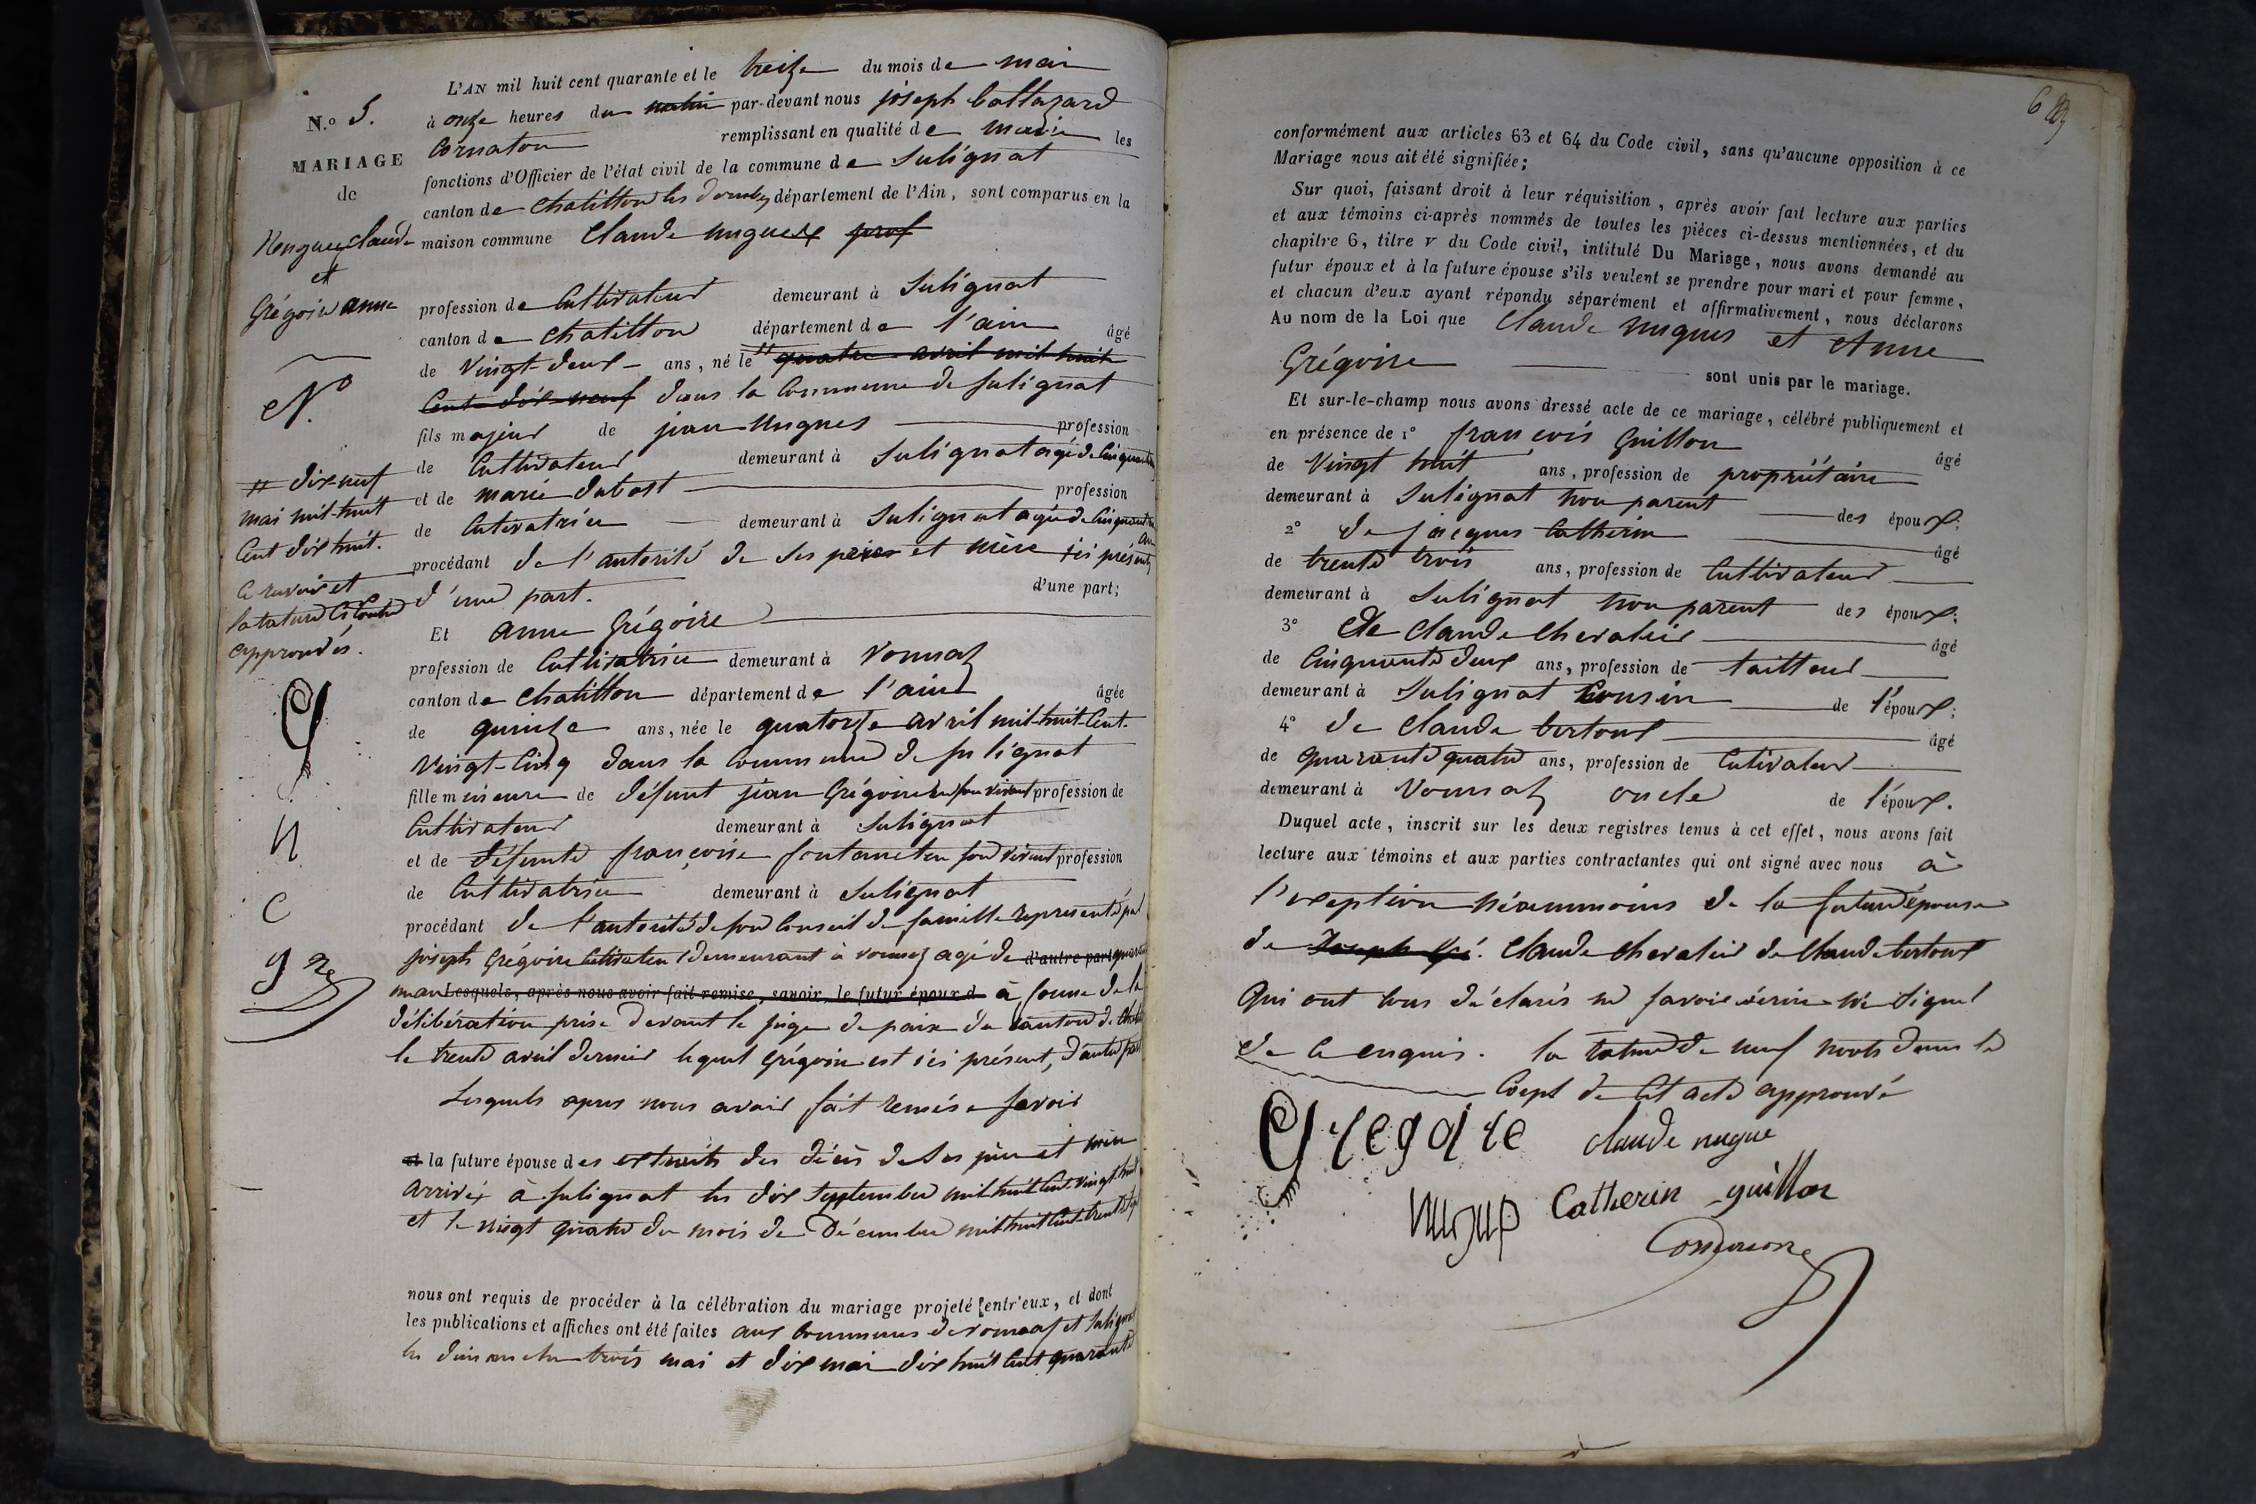 N.o 5.
MARIAGE
de
Nugues claude
et
Grégoire anne
N.o
" dix neuf
mai mil-huit
Cent dix huit.
le renvoi et
la rature ci contre
approuvés.
G
n
c
g re
L'AN mil huit cent quarante et le treize du mois de mai
à onze heures du matin par-devant nous joseph baltazard
Cornaton remplissant en qualité de maire les
fonctions d'Officier de l'état civil de la commune de Sulignat
canton de Chatillon les dombes département de l'Ain, sont comparus en la
maison commune Claude nugues prof
profession de Cultivateur demeurant à Sulignat
canton de Chatillon département de l'ain âgé
de Vingt-deux ans, né le " quatre avril mil huit
Cent dix-neuf dans la Commune de Sulignat
fils majeur de jean Nugues profession
de Cultivateur demeurant à Sulignat agé de Cinquante
et de marie dubost profession
de Cultivatrice demeurant à Sulignat agée de Cinquante
procédant de l'autorité de ses père et mère ici présents
d'une part. d'une part;
Et anne Grégoire
profession de Cultivatrice demeurant à Vonnas
canton de Chatillon département de l'ain âgée
de quinze ans, née le quatorze avril mil-huit-Cent-
Vingt-Cinq dans la Commune de Sulignat
fille mineure de défunt jean Grégoire en son vivant profession de
Cultivateur demeurant à Sulignat
et de défunte françoise fontaine en son vivant profession
de Cultivatrice demeurant à Sulignat
procédant de l'autorité de son Conseil de famille représenté par
joseph Grégoire Cultivateur demeurant à vonnas agé de d'autre part
Lesquels, après nous avoir fait remise, savoir, le futur époux d à forme de la
délibération prise devant le juge de paix du canton de
le trente avril dernier lequel Grégoire est ici présent, d'autre part
Lesquels apres nous avoir fait remise savoir
et la future épouse des extraits des décès de ses père et mère
arrivés à Sulignat les dix Septembre mil huit Cent vingt huit
et le vingt quatre du mois de Décembre mil huit Cent trente
nous ont requis de procéder à la célébration du mariage projeté entr'eux, et dont
les publications et affiches ont été faites aux Communes de vonnas et Sulignat
les dimanches trois mai et dix mai dix huit Cent quarante
6
conformément aux articles 63 et 64 du Code civil, sans qu'aucune opposition à ce
Mariage nous ait été signifiée;
Sur quoi, faisant droit à leur réquisition, après avoir fait lecture aux parties
et aux témoins ci-après nommés de toutes les pièces ci-dessus mentionnées, et du
chapitre 6, titre v du Code civil, intitulé Du Mariage, nous avons demandé au
futur époux et à la future épouse s'ils veulent se prendre pour mari et pour femme,
et chacun d'eux ayant répondu séparément et affirmativement, nous déclarons
Au nom de la Loi que Claude nugues et Anne
Grégoire sont unis par le mariage.
Et sur-le-champ nous avons dressé acte de ce mariage, célébré publiquement et
en présence de 1° françois Guillon âgé
de Vingt huit ans, profession de propriétaire
demeurant à Sulignat non parent des époux;
2° de jacques Catherin âgé
de trente trois ans, profession de Cultivateur
demeurant à Sulignat non parent des époux;
3° de Claude Chevalier âgé
de Cinquante deux ans, profession de tailleur
demeurant à Sulignat Cousin de l'époux;
4° de Claude bertout âgé
de quarante quatre ans, profession de Cultivateur
demeurant à Vonnas oncle de l'époux.
Duquel acte, inscrit sur les deux registres tenus à cet effet, nous avons fait
lecture aux témoins et aux parties contractantes qui ont signé avec nous à
l'exeption néanmoins de la future épouse
de Joseph Gré. Claude Chevalier de Claude bertout
Qui ont tous déclarés ne savoir écrire ni signer
de ce enquis. la rature de neuf mots dans le
Corps de Cet acte approuvé
Gregoire claude nugue
nugue Catherin guillon